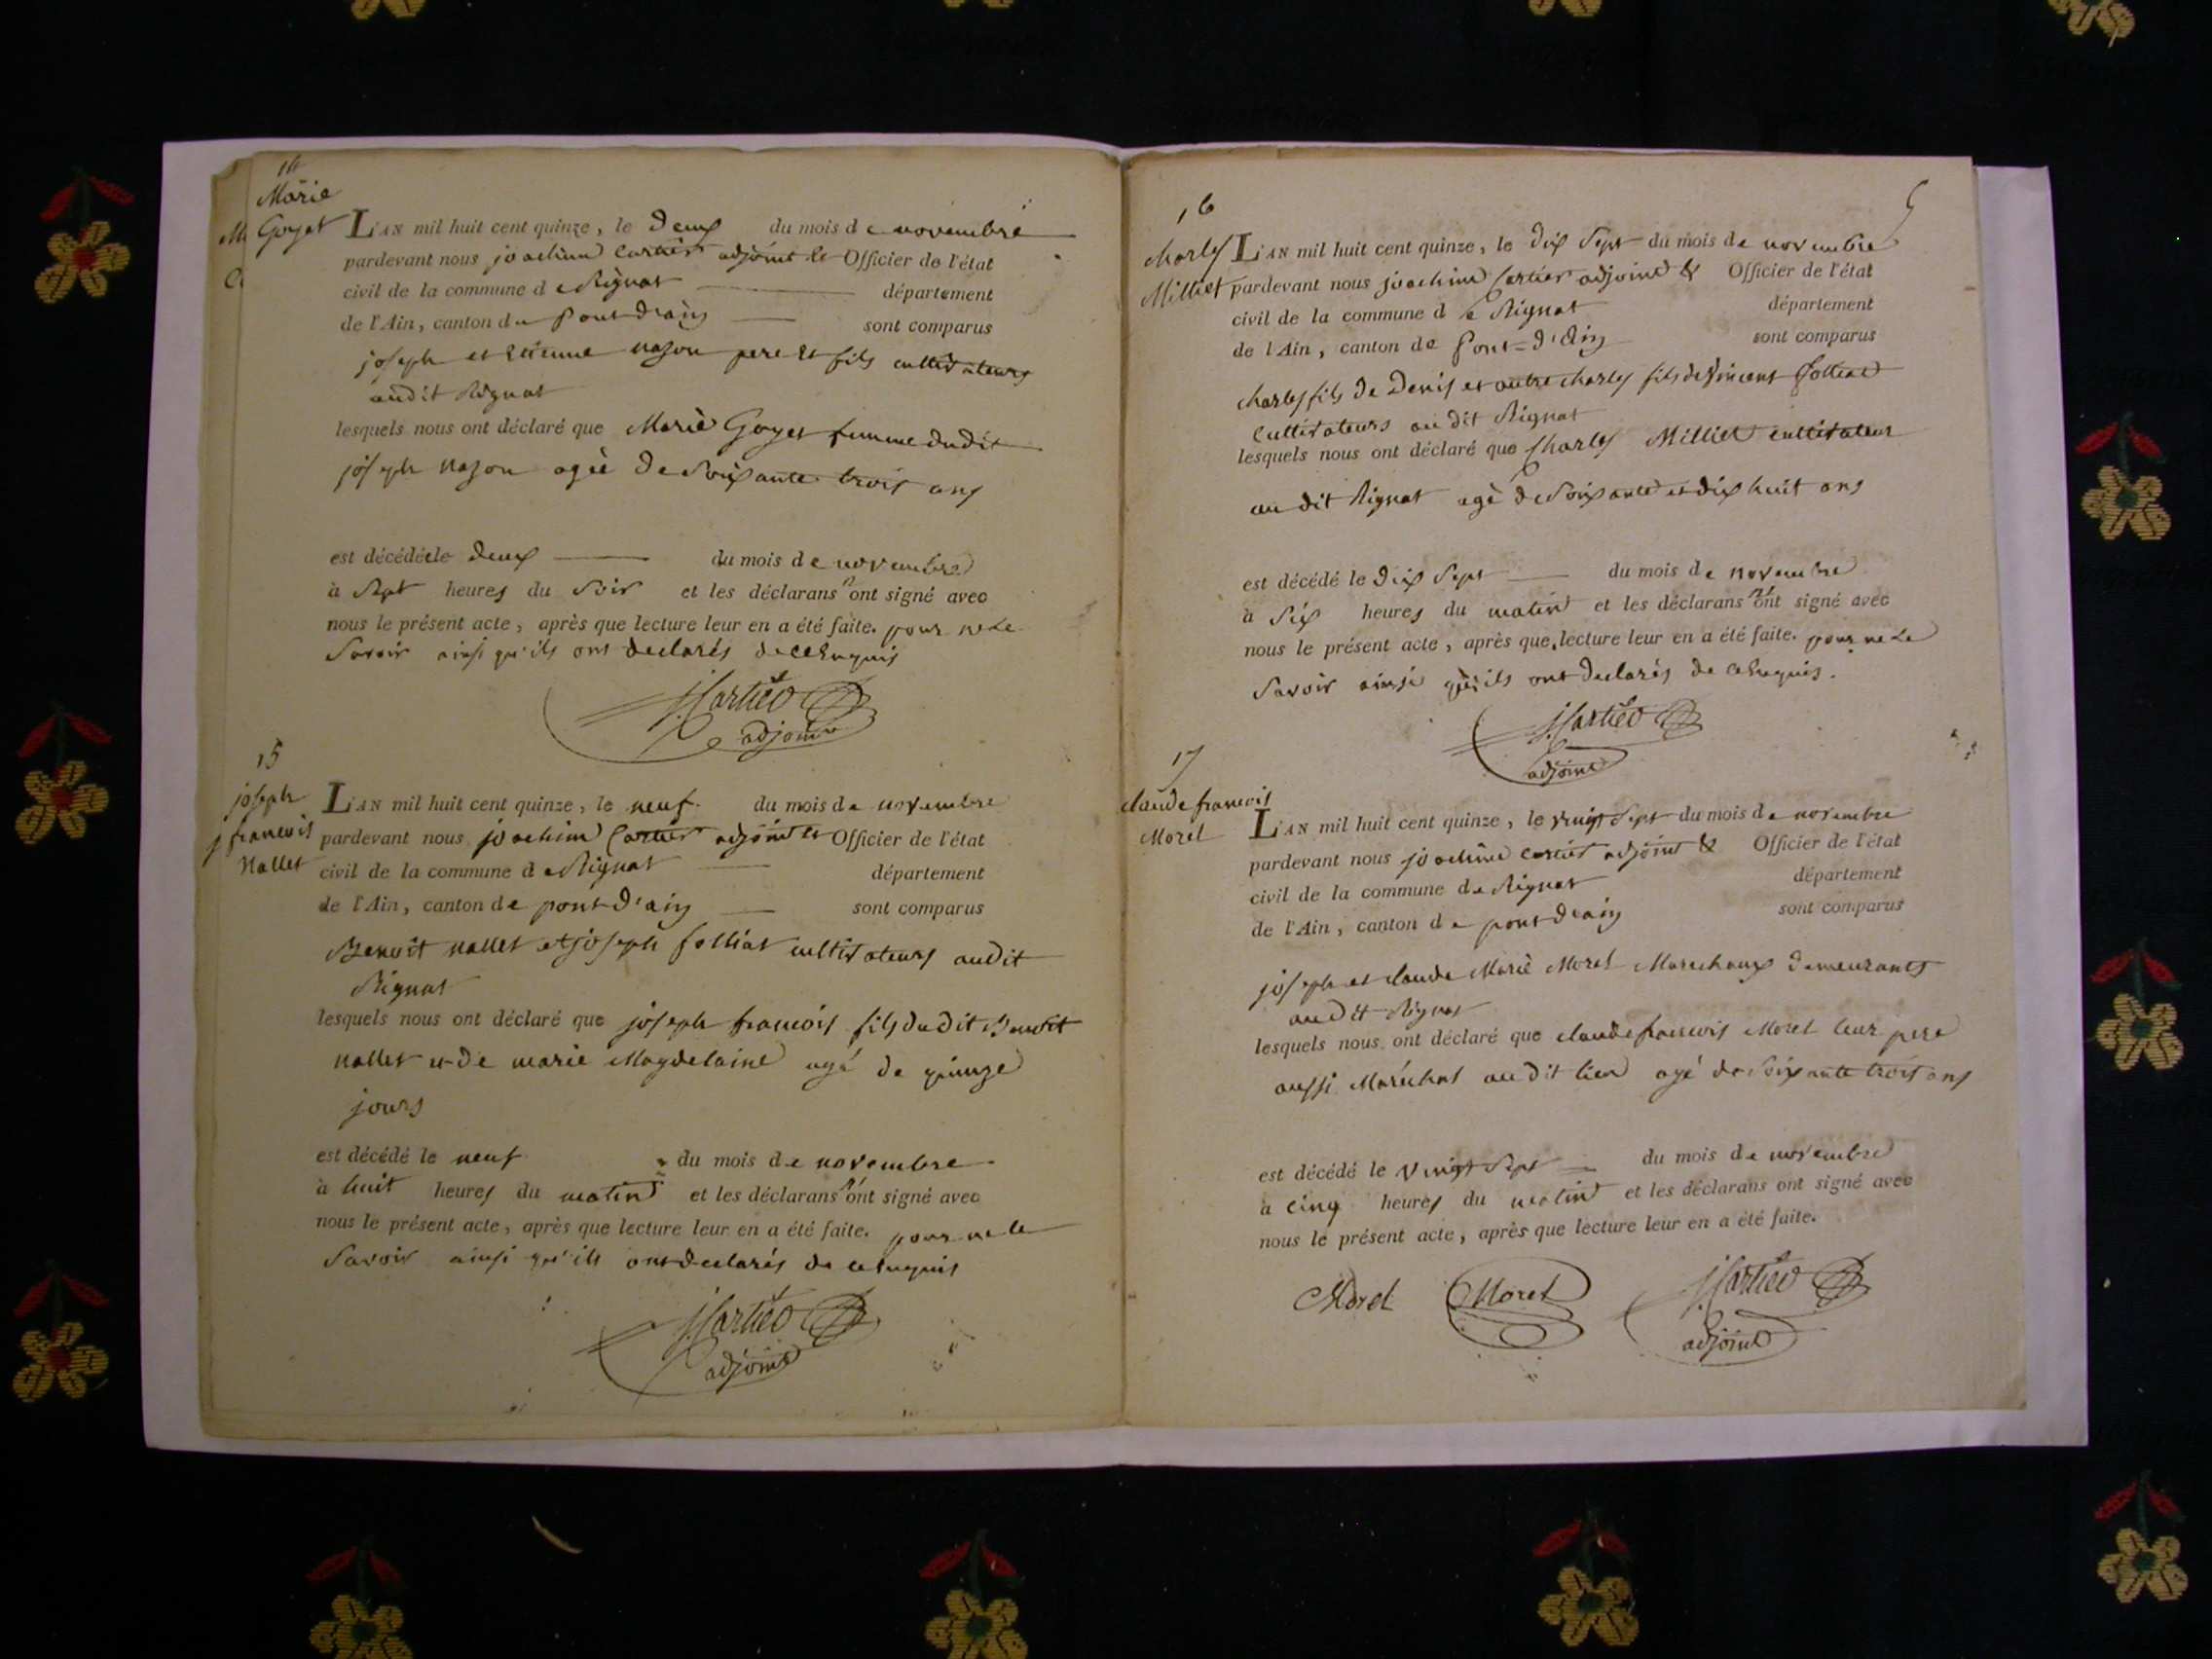 14
Marie
Goyet
L'AN mil huit cent quinze, le deux du mois de novembre
pardevant nous joachim Cartier adjoint et Officier de l'état
civil de la commune de Rignat département
de l'Ain, canton de Pont d'ain sont comparus
joseph et Etienne nazon pere et fils cultivateurs
audit Rignat
lesquels nous ont déclaré que Marie Goyet femme dudit
joseph nazon agée de soixante trois ans
est décédée le deux du mois de novembre
à sept heures du soir et les déclarans n'ont signé avec
nous le présent acte, après que lecture leur en a été faite. pour ne le
savoir ainsi qu'ils ont declarés de ce Enquis
J. Cartier
adjoint
15
joseph
francois
Nallet
L'AN mil huit cent quinze, le neuf du mois de novembre
pardevant nous joachim Cartier adjoint et Officier de l'état
civil de la commune de Rignat département
de l'Ain, canton de pont d'ain sont comparus
Benoit nallet et joseph folliat cultivateurs audit
Rignat
lesquels nous ont déclaré que joseph francois fils dudit Benoit
nallet et de marie Magdelaine agé de quinze
jours
est décédé le neuf du mois de novembre
à huit heures du matin et les déclarans n'ont signé avec
nous le présent acte, après que lecture leur en a été faite. pour ne le
savoir ainsi qu'ils ont declarés de ce Enquis
J. Cartier
adjoint
16
Charles
Milliet
L'AN mil huit cent quinze, le dix sept du mois de novembre
pardevant nous joachim Cartier adjoint & Officier de l'état
civil de la commune de Rignat département
de l'Ain, canton de Pont-d'Ain sont comparus
charles fils de Denis et autre charles fils de Vincent folliat
Cultivateurs au dit Rignat
lesquels nous ont déclaré que Charles Milliet cultivateur
au dit Rignat agé de soixante et dix huit ans
est décédé le dix sept du mois de novembre
à six heures du matin et les déclarans n'ont signé avec
nous le présent acte, après que lecture leur en a été faite. pour ne le
savoir ainsi qu'ils ont declarés de ce Enquis.
J. Cartier
adjoint
17
claude francois
Morel
L'AN mil huit cent quinze, le vingt sept du mois de novembre
pardevant nous joachim Cartier adjoint & Officier de l'état
civil de la commune de Rignat département
de l'Ain, canton de pont d'ain sont comparus
joseph et claude Marie Morel Marechaux demeurants
audit Rignat
lesquels nous ont déclaré que claude francois Morel leur pere
aussi Maréchal au dit lieu agé de soixante trois ans
est décédé le vingt sept du mois de novembre
à cinq heures du matin et les déclarans ont signé avec
nous le présent acte, après que lecture leur en a été faite.
Morel Morel J. Cartier
adjoint